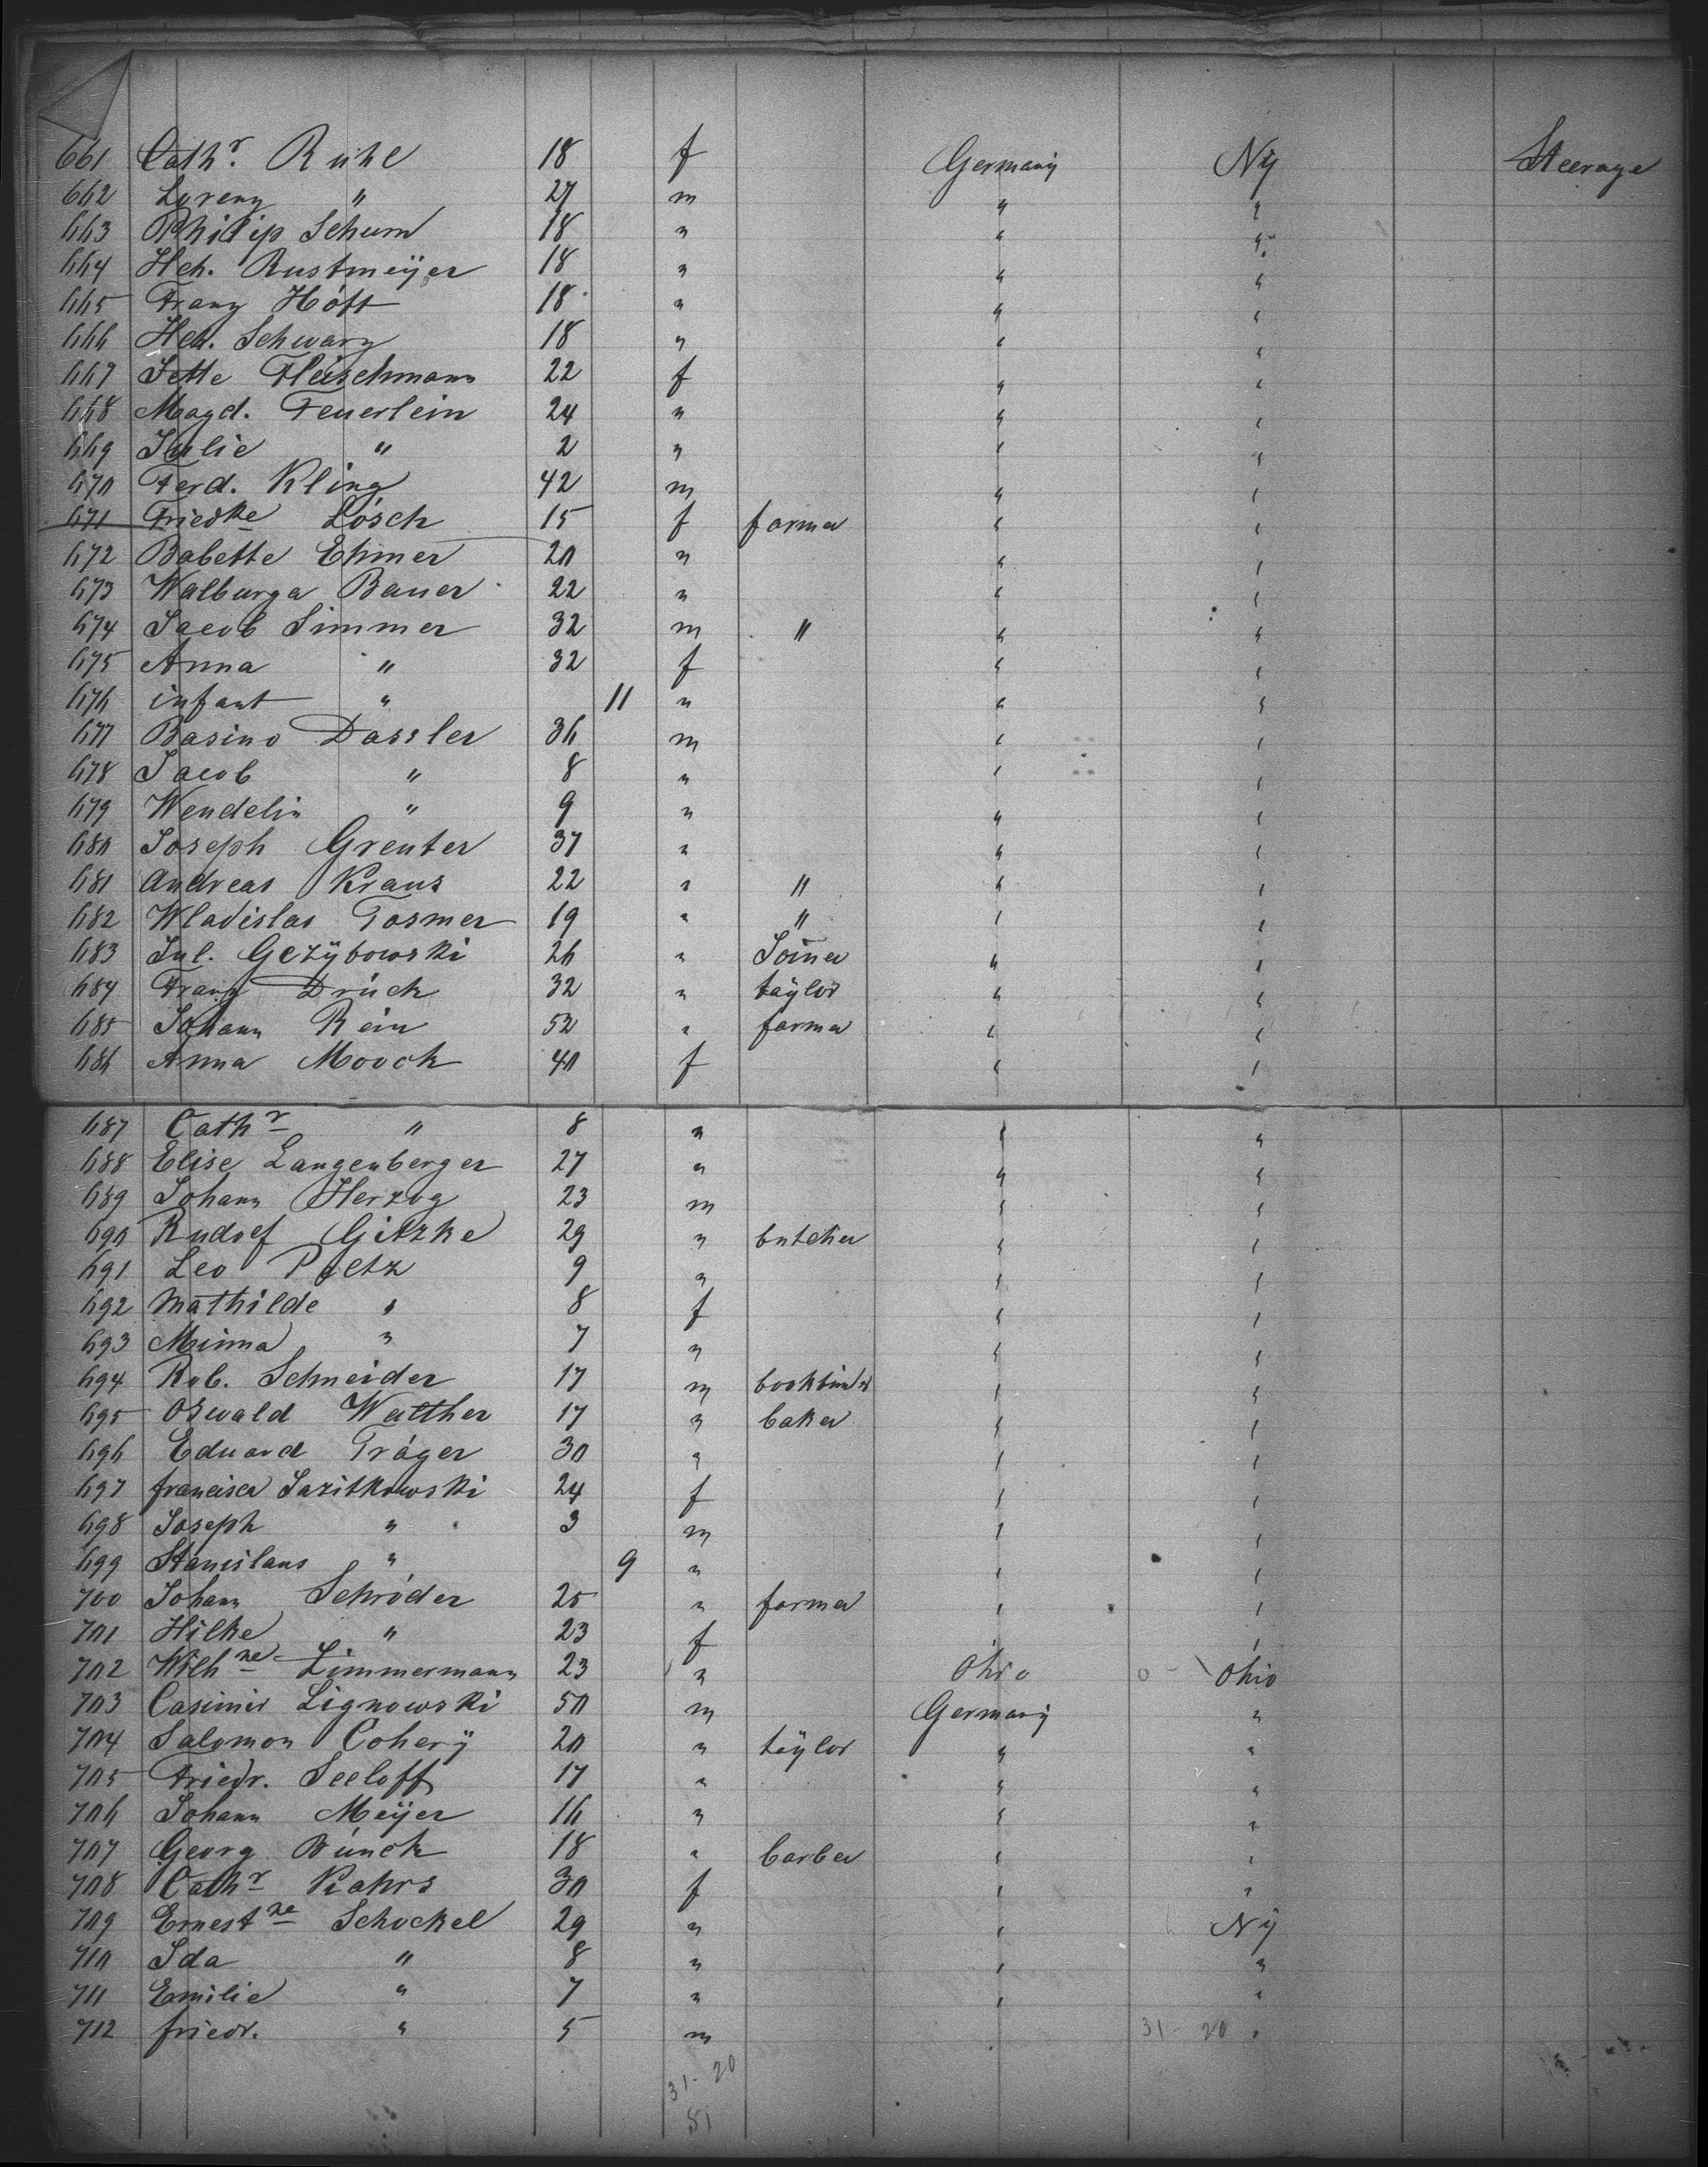 661 Cathr. Ruhl 18 f Germany Ny Steerage
662 Lorenz " 27 m " "
663 Philip Schum 18 " " "
664 Hch. Rustmeÿer 18 " " "
665 Franz Höft 18 " " "
666 Hch. Schwarz 18 " " "
667 Jette Fleischmann 22 f " "
668 Magd. Feuerlein 24 " " "
669 Julie " 2 " " "
670 Ferd. Kling 42 m " "
671 Friedke Lösch 15 f farmer " "
672 Babette Ehmer 20 " " "
673 Walburga Bauer 22 " " "
674 Jacob Simmer 32 m " " "
675 Anna " 32 f " "
676 infant " 11 " " "
677 Basino Dassler 36 m " "
678 Jacob " 8 " " "
679 Wendelin " 9 " " "
680 Joseph Greuter 37 " " "
681 Andreas Kraus 22 " " " "
682 Wladislas Tosmer 19 " " " "
683 Jul. Gezÿbowski 26 " Joiner " "
684 Franz Drück 32 " taÿlor " "
685 Johann Rein 52 " farmer " "
686 Anna Moock 40 f " "
687 Cathr " 8 " " "
688 Elise Langenberger 27 " " "
689 Johann Herzog 23 m " "
690 Rudolf Gitzke 29 " butcher " "
691 Leo Paetz 9 " " "
692 Mathilde " 8 f " "
693 Minna " 7 " " "
694 Rob. Schneider 17 m bookbinder " "
695 Oswald Walther 17 " baker " "
696 Eduard Träger 30 " " "
697 francisca Sazitkowski 24 f " "
698 Joseph " 3 m " "
699 Stanislaus " 9 " " "
700 Johann Schröder 25 " farmer " "
701 Hilke " 23 f " "
702 Wilhne Zimmermann 23 " Ohio Ohio
703 Casimir Lignowski 50 m Germany "
704 Salomon Coherÿ 20 " taÿlor " "
705 Friedr. Seeloff 17 " " "
706 Johann Meÿer 16 " " "
707 Georg Bünck 18 " barber " "
708 Cathr Kahrs 30 f " "
709 Ernestne Schockel 29 " " Ny
710 Ida " 8 " " "
711 Emilie " 7 " " "
712 friedr. " 5 m " 31-20 "
31-20
51